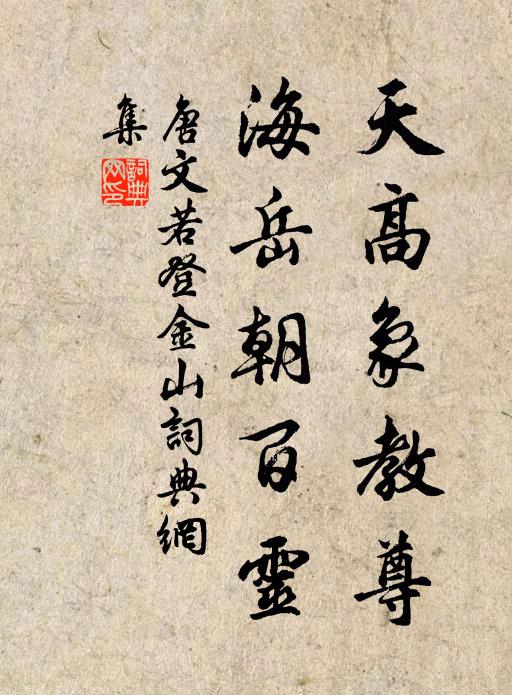 天高象教尊
海岳朝百靈
唐文若登金山詞典網
集
詞典網印